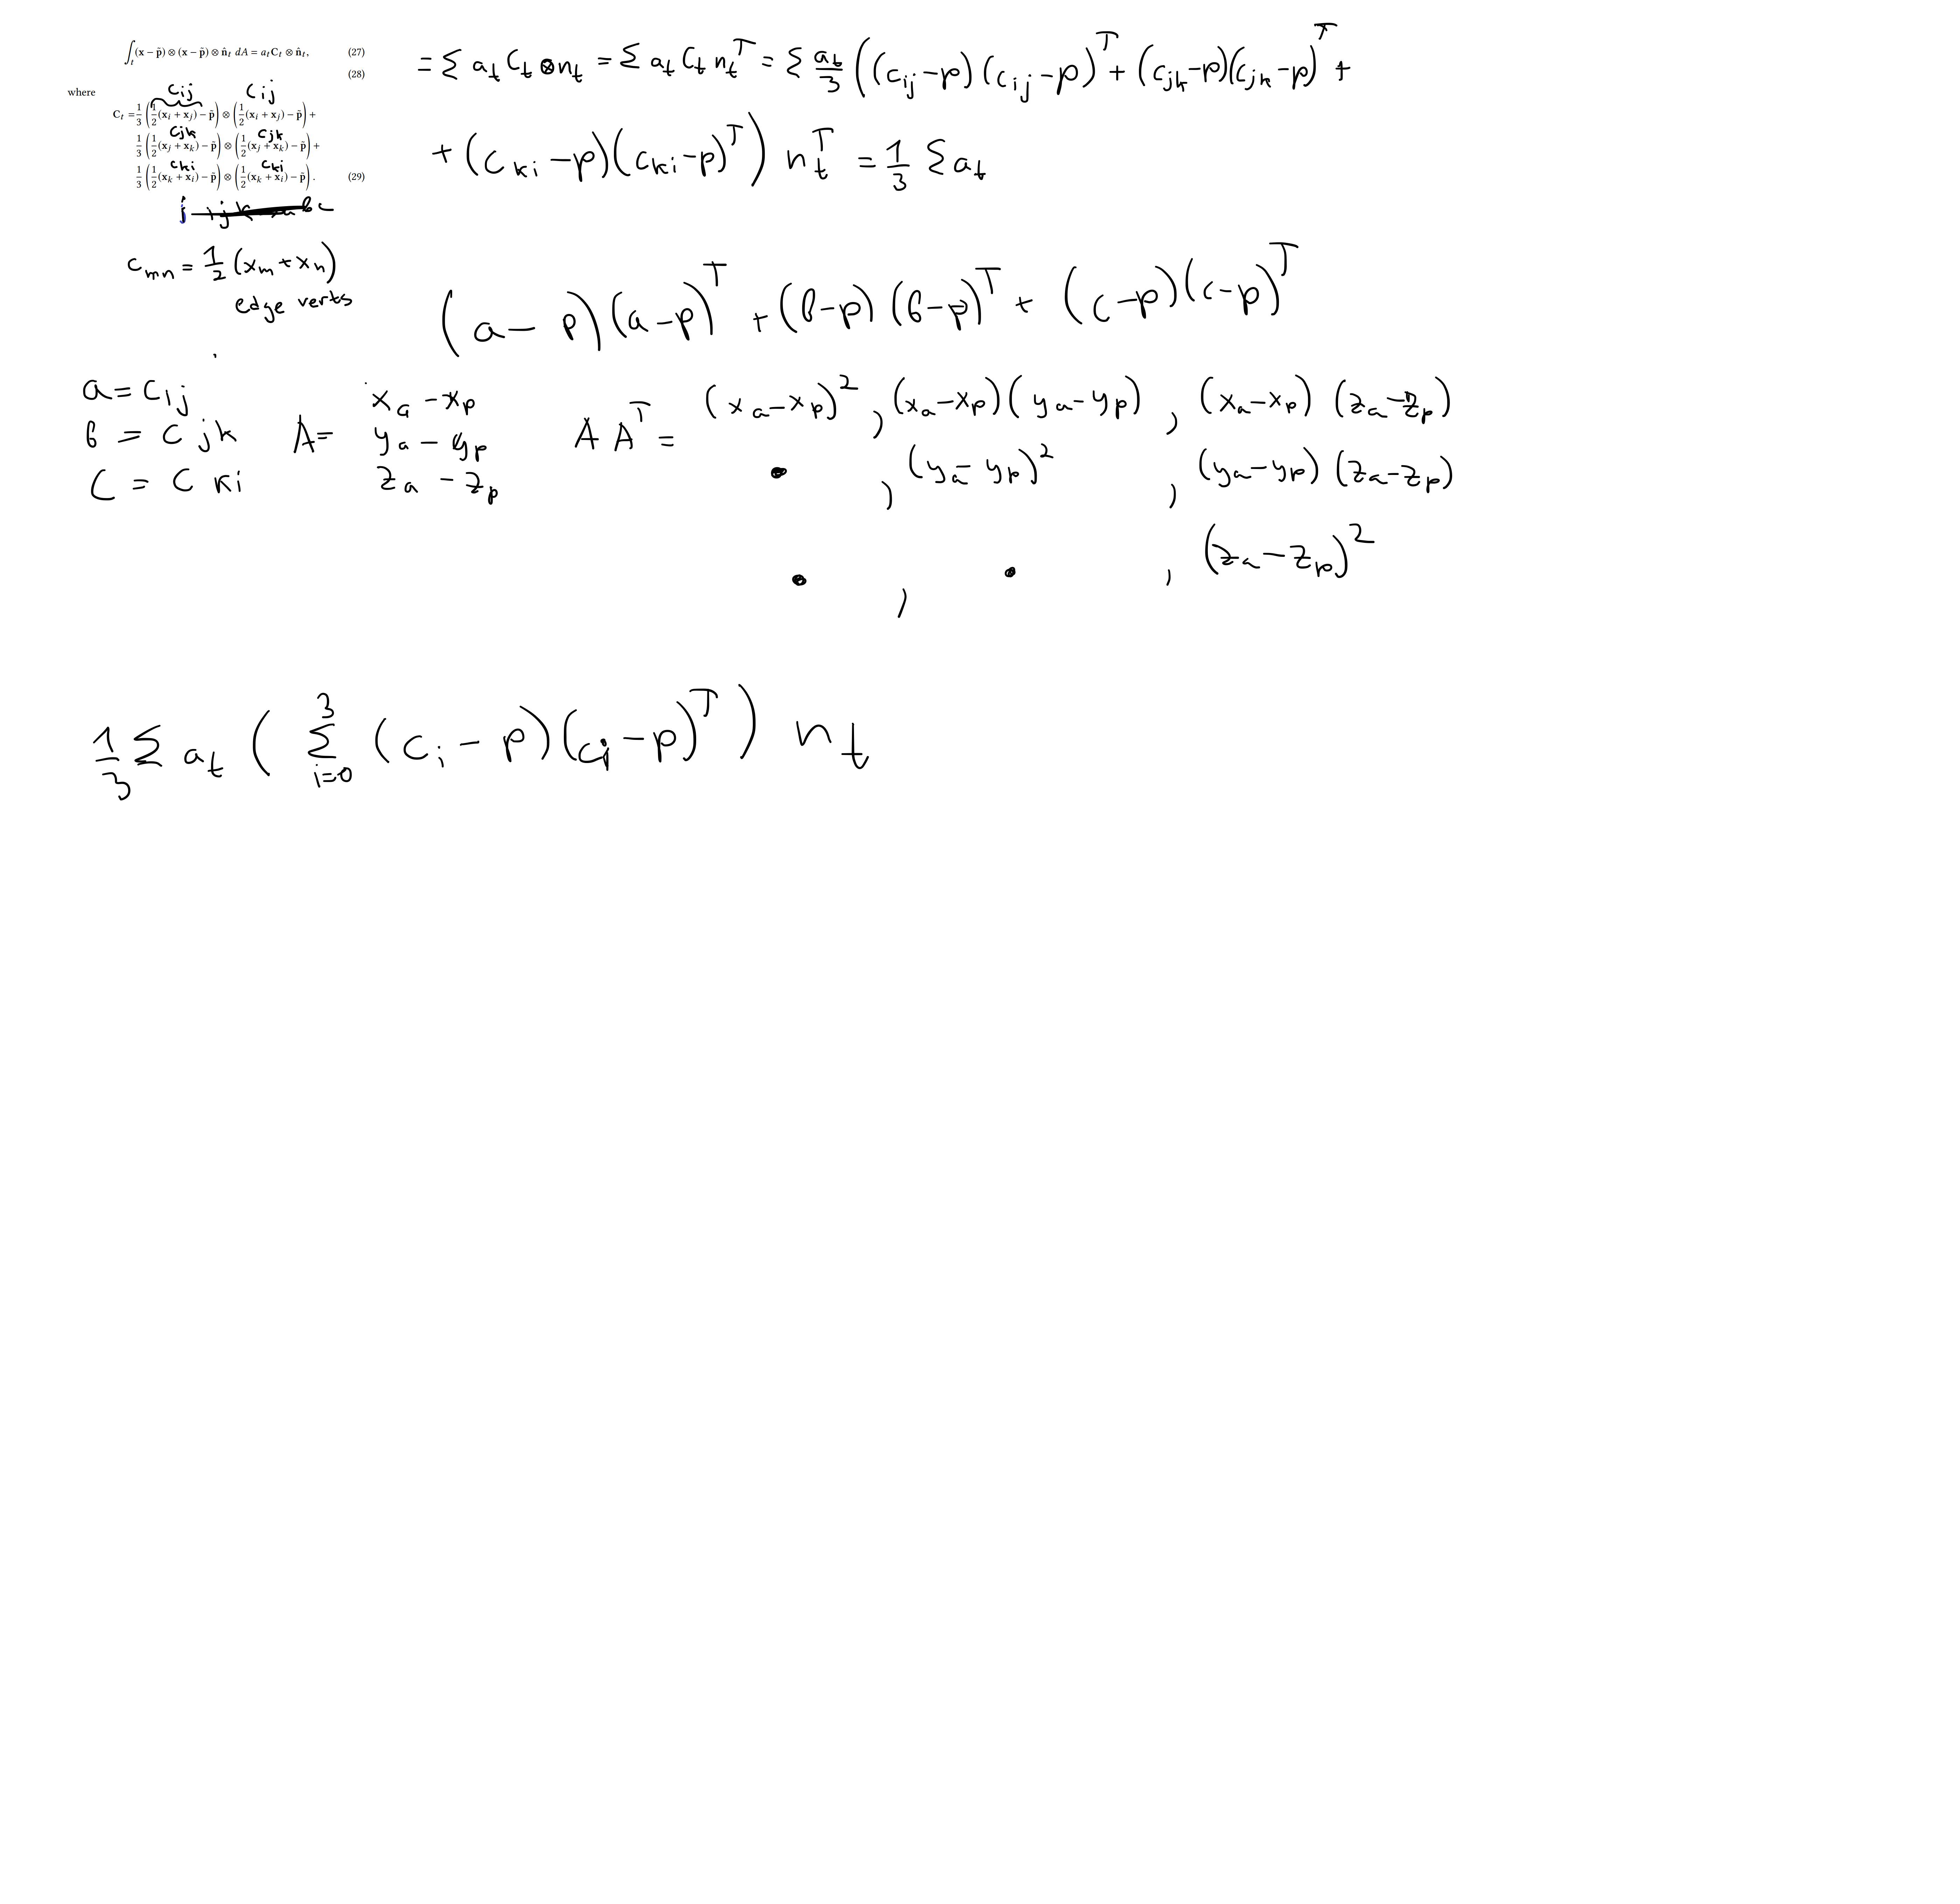 ∫_t (x − p̃) ⊗ (x − p̃) ⊗ n̂_t dA = a_t C_t ⊗ n̂_t, (27)
(28)
where
c_ij c_ij
C_t = 1/3 (1/2(x_i + x_j) − p̃) ⊗ (1/2(x_i + x_j) − p̃) +
c_jk c_jk
1/3 (1/2(x_j + x_k) − p̃) ⊗ (1/2(x_j + x_k) − p̃) +
c_ki c_ki
1/3 (1/2(x_k + x_i) − p̃) ⊗ (1/2(x_k + x_i) − p̃). (29)
c_mn = 1/2 (x_m + x_n)
edge verts
= Σ a_t C_t ⊗ n_t = Σ a_t C_t n_t^T = Σ a_t/3 ((c_ij − p)(c_ij − p)^T + (c_jk − p)(c_jk − p)^T +
+ (c_ki − p)(c_ki − p)^T) n_t^T = 1/3 Σ a_t
(a − p)(a − p)^T + (b − p)(b − p)^T + (c − p)(c − p)^T
a = c_ij
b = c_jk
c = c_ki
A =
x_a − x_p
y_a − y_p
z_a − z_p
A A^T =
(x_a − x_p)^2 , (x_a − x_p)(y_a − y_p) , (x_a − x_p)(z_a − z_p)
• , (y_a − y_p)^2 , (y_a − y_p)(z_a − z_p)
• , • , (z_a − z_p)^2
1/3 Σ a_t ( Σ_{i=0}^{3} (c_i − p)(c_i − p)^T ) n_t